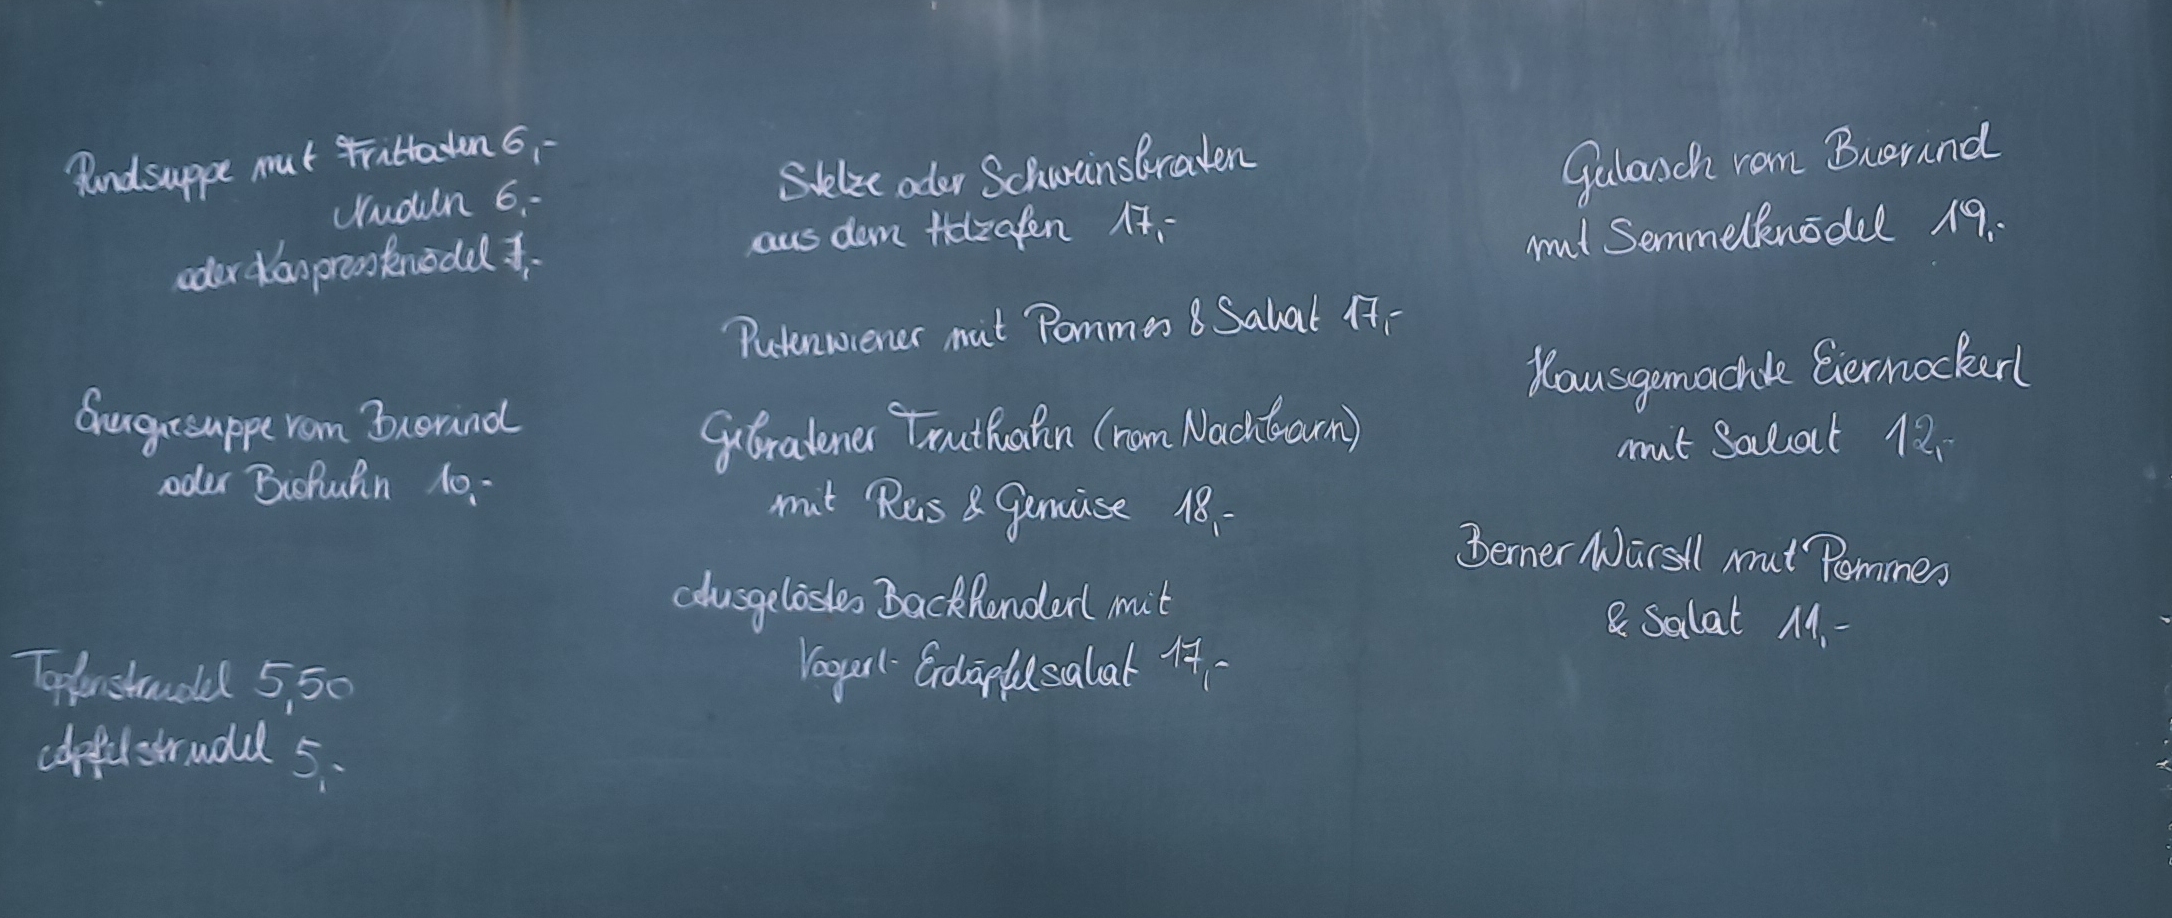 Rindsuppe mit Frittaten 6,-
Nudeln 6,-
oder Kaspressknödel 7,-
Energiesuppe vom Biorind
oder Biohuhn 10,-
Topfenstrudel 5,50
Apfelstrudel 5,-
Stelze oder Schweinsbraten
aus dem Holzofen 17,-
Putenwiener mit Pommes & Salat 17,-
Gebratener Truthahn (vom Nachbarn)
mit Reis & Gemüse 18,-
Ausgelöstes Backhenderl mit
Vogerl- Erdäpfelsalat 17,-
Gulasch vom Biorind
mit Semmelknödel 19,-
Hausgemachte Eiernockerl
mit Salat 12,-
Berner Würstl mit Pommes
& Salat 11,-